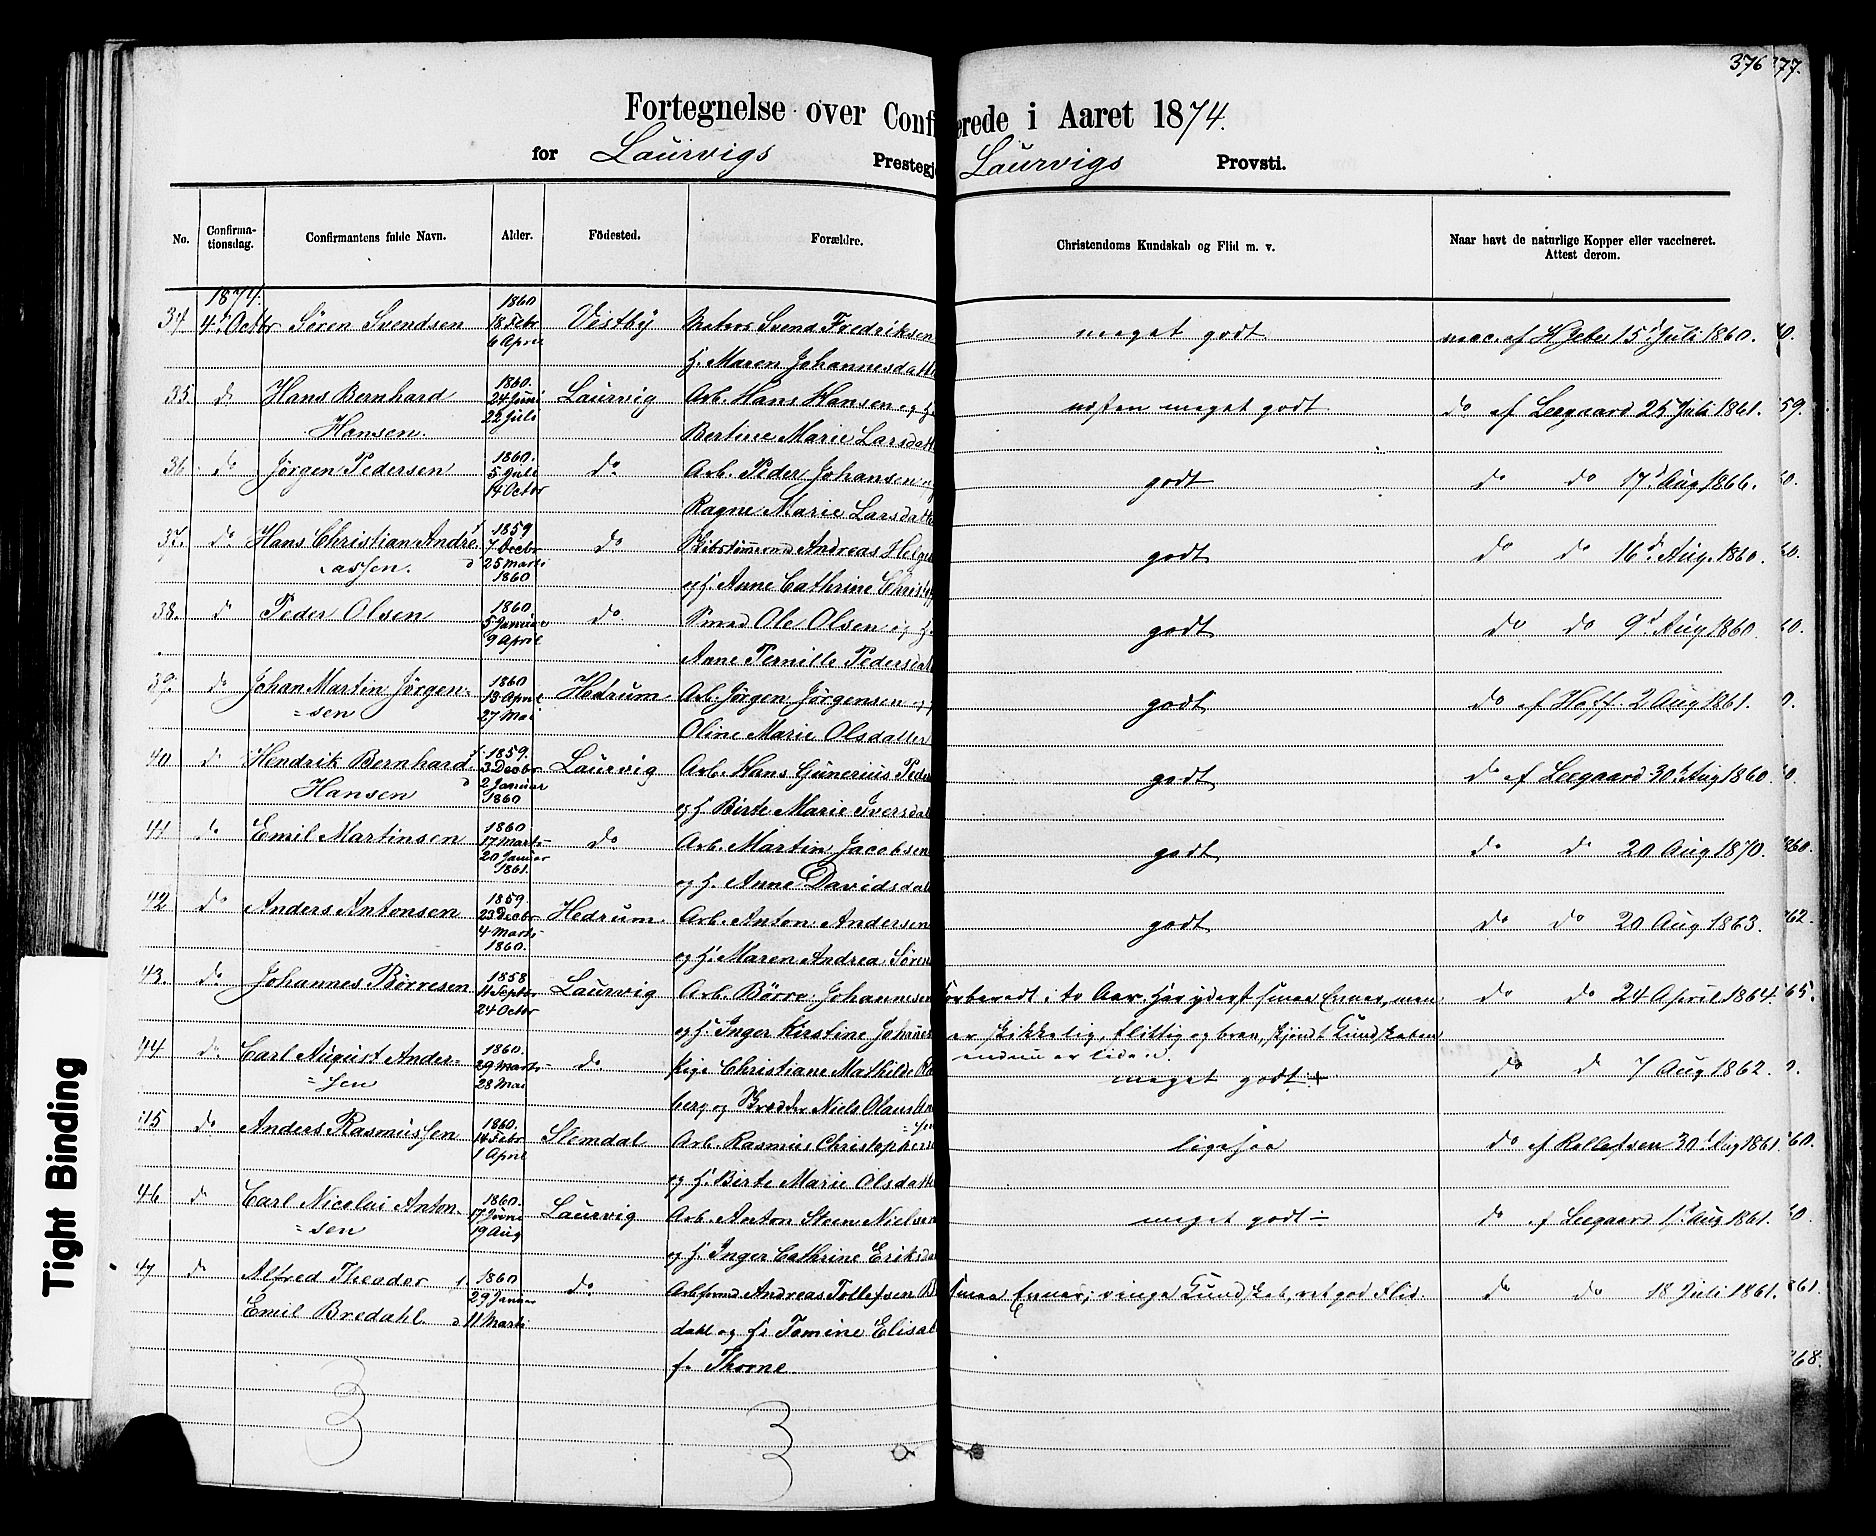 376 77.
Fortegnelse over Confi erede i Aaret 1874.
for Laurvigs Prestegj Laurvigs Provsti.
No. Confirma-tionsdag. Confirmantens fulde Navn. Alder. Födested. Forældre. Christendoms Kundskab og Flid m. v. Naar havt de naturlige Kopper eller vaccineret. Attest derom.
1874. 1860
34 4d Octbr Sören Svendsen 18 Febr Vestby Matros Svend Fredriksen meget godt vacc. af 15d Juli 1860. 0.
6 April f. Maren Johannesdatt
35. do Hans Bernhard 1860. 24 Juni Laurvig Arb. Hans Hansen og f. næsten meget godt do af Leegaard 25 Juli 1861. 59.
Hansen. 22 Juli Bertine Marie Larsdatt
36 do Jörgen Pedersen 1860. 5 Juli do Arb. Peder Johansen og godt do do 17d Aug 1866. 60.
14 Octbr Ragne Marie Larsdatt
37. do Hans Christian Andre f 1859 7 Decbr do Andreas Helge godt do do 16d Aug. 1860. 60.
assen. d 25 Marts 1860 og f. Anne Cathrine Christ
38. do Peder Olsen 1860. 5 Januar do. Ole Olsen og f. godt do do 9d Aug 1860. 60.
9 April Anne Pernille Pedersdat
39. do Johan Martin Jörgen- 1860 13 April Hedrum Arb. Jörgen Jörgensen og f godt do af Hoff. 2 Aug 1861. 0.
=sen 27 Mai Oline Marie Olsdatter
40 do Hendrik Bernhard f. 1859. 3 Decbr Laurvig Arb. Hans Gunerius Peder godt do af Leegaard 30d Aug 1860. 0.
Hansen d 2 Januar 1860 og f. Birte Marie Iversdat
41 do Emil Martinsen 1860 17 Marts do Arb. Martin Jacobsen godt do do 20 Aug 1870. 1860.
20 Januar 1861. og f. Anne Davidsdat
42 do Anders Antonsen 1859. 23 Decbr Hedrum Arb. Anton Andersen godt do do 20 Aug 1863. 62.
4 Marts 1860. og f. Maren Andrea Sören
43. do Johannes Börresen 1858 11 Septbr Laurvig Arb. Börre Johannsen Forberedt i to Aar. Har yderst smaa Evner, men do do 24 April 1864. 65.
24 Octbr og f. Inger Kirstine Johanes er skikkelig, flittig og brav, skjöndt Kundskaben
44 do Carl August Ander- 1860. 29 Marts do Pige Christiane Mathilde endnu er liden. do do 7 Aug 1862. 0.
=sen 28 Mai meget godt +
berg og Niels Olaus
45 do Anders Rasmussen 1860. 14 Febr Slemdal Arb. Rasmus Christophers ligesaa do af Rollefsen 30d Aug 1861 60.
1 April og f. Birte Marie Olsdatt
46 do Carl Nicolai Anton- 1860. 17 Juni Laurvig Arb. Anton Steen Nielsen meget godt ÷ do af Leegaard 1d Aug 1861. 60.
=sen 19 Aug og f. Inger Cathrine Eriksda
47 do Alfred Theodor f 1860 29 Januar do Andreas Tollefsen B Smaa Evner; ringe Kundskab, ret god Flid do do 18 Juli 1861. 861.
Emil Bredahl. d 11 Marts dahl og f. Tomine Elisab
f. Thorne. 68.
3 3
Tight Binding